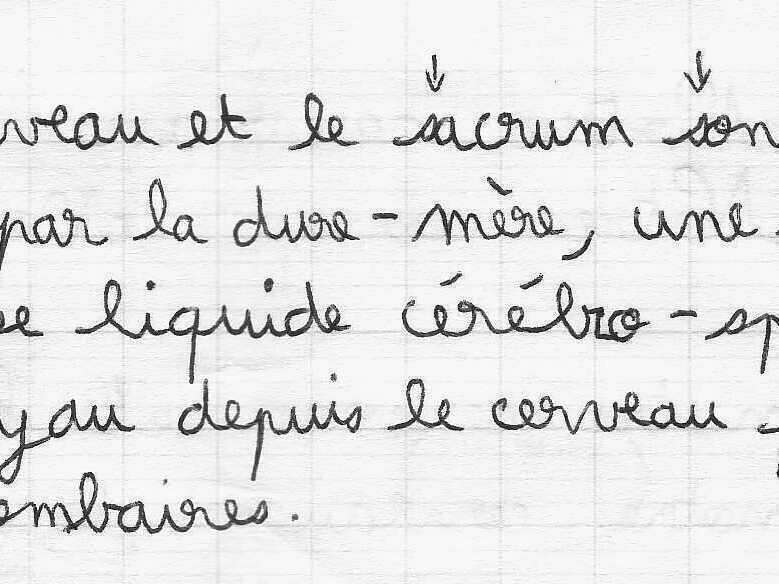 veau et le sacrum son
par la dure-mère, une
e liquide cérébro-sp
yau depuis le cerveau
ombaires.